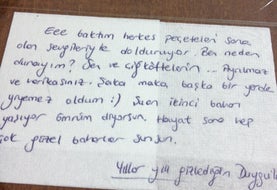 Eee baktım herkes peçeteleri sana
olan sevgileriyle dolduruyor. Ben neden
durayım? Sen ve çiğköftelerin ... Ayrılmaz
ve harikasınız. Şaka maka başka bir yerde
yiyemez oldum :) Sen ikinci baharı
yaşıyor ömrüm diyorsun. Hayat sana hep
çok güzel baharlar sunsun.
Yıllar yılı gizlediğin Duygu